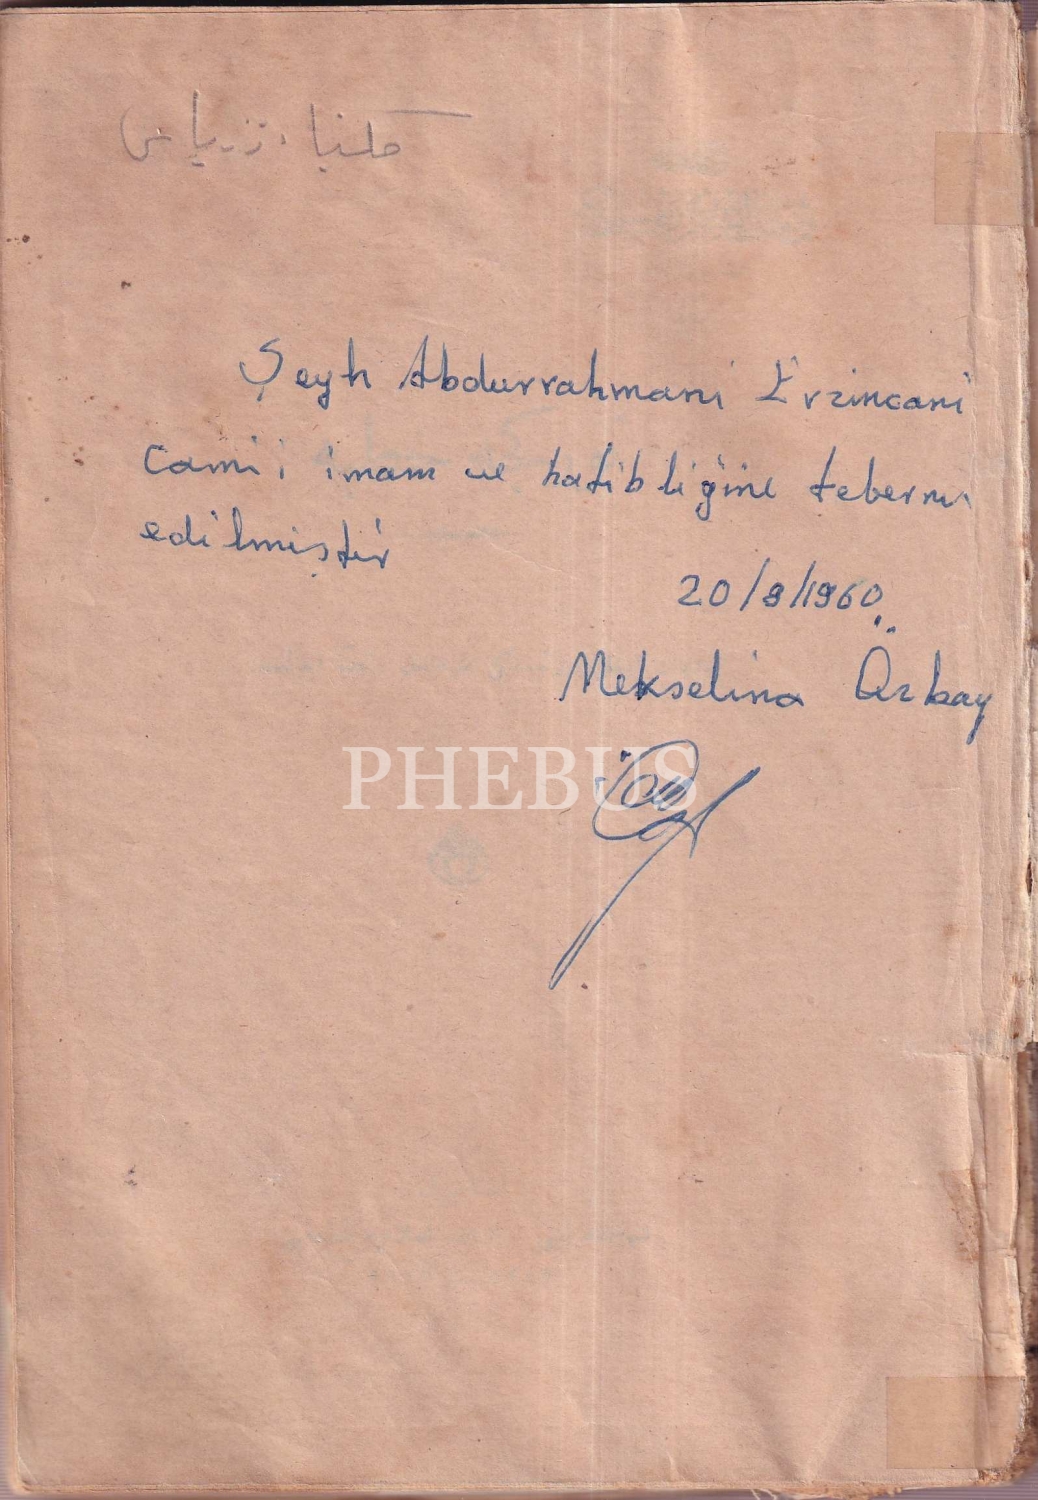 Şeyh Abdurrahmani Erzincani
Cami'i imam ve hatibliğine teberru
edilmiştir
20/8/1960
Mekselina Özbay
PHEBUS